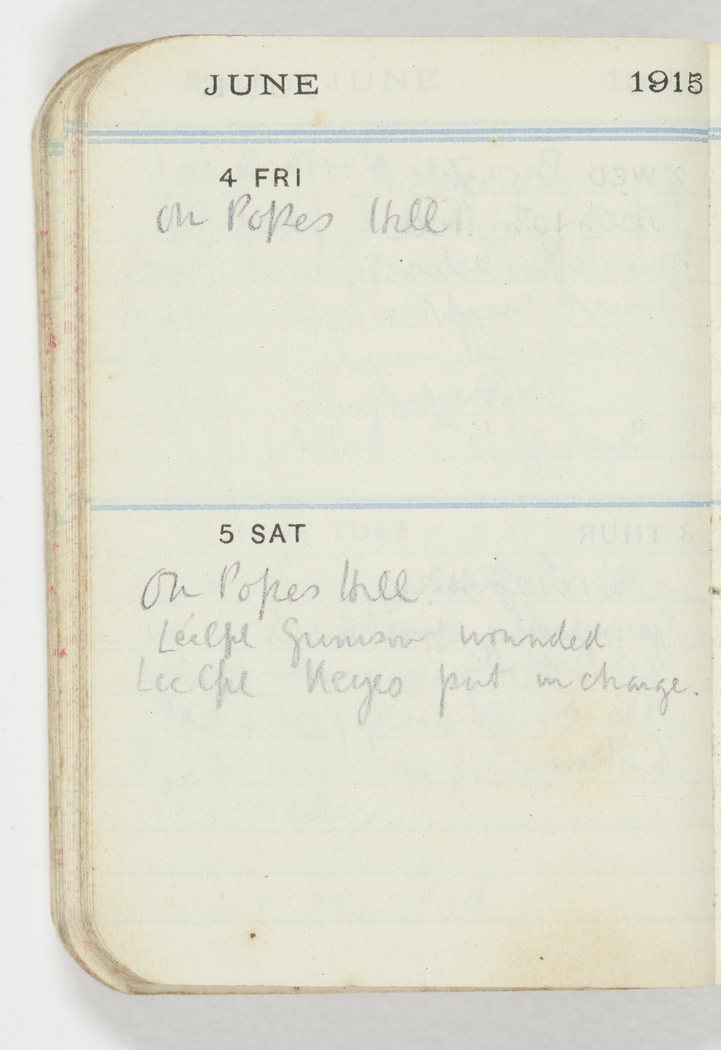 JUNE 1915
4 FRI
On Popes Hill
5 SAT
On Popes Hill
Lce Cpl Gunnison wounded
Lce Cpl Keyes put in charge.